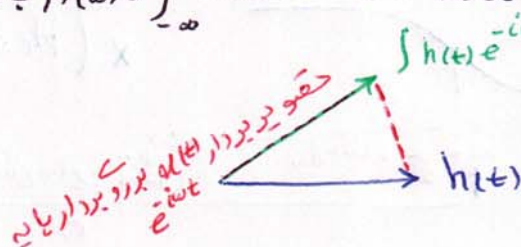 ∫ h(t) e^{-i
-∞
تصویر بردار h(t) بر روی بردار پایه
e^{iωt}
h(t)